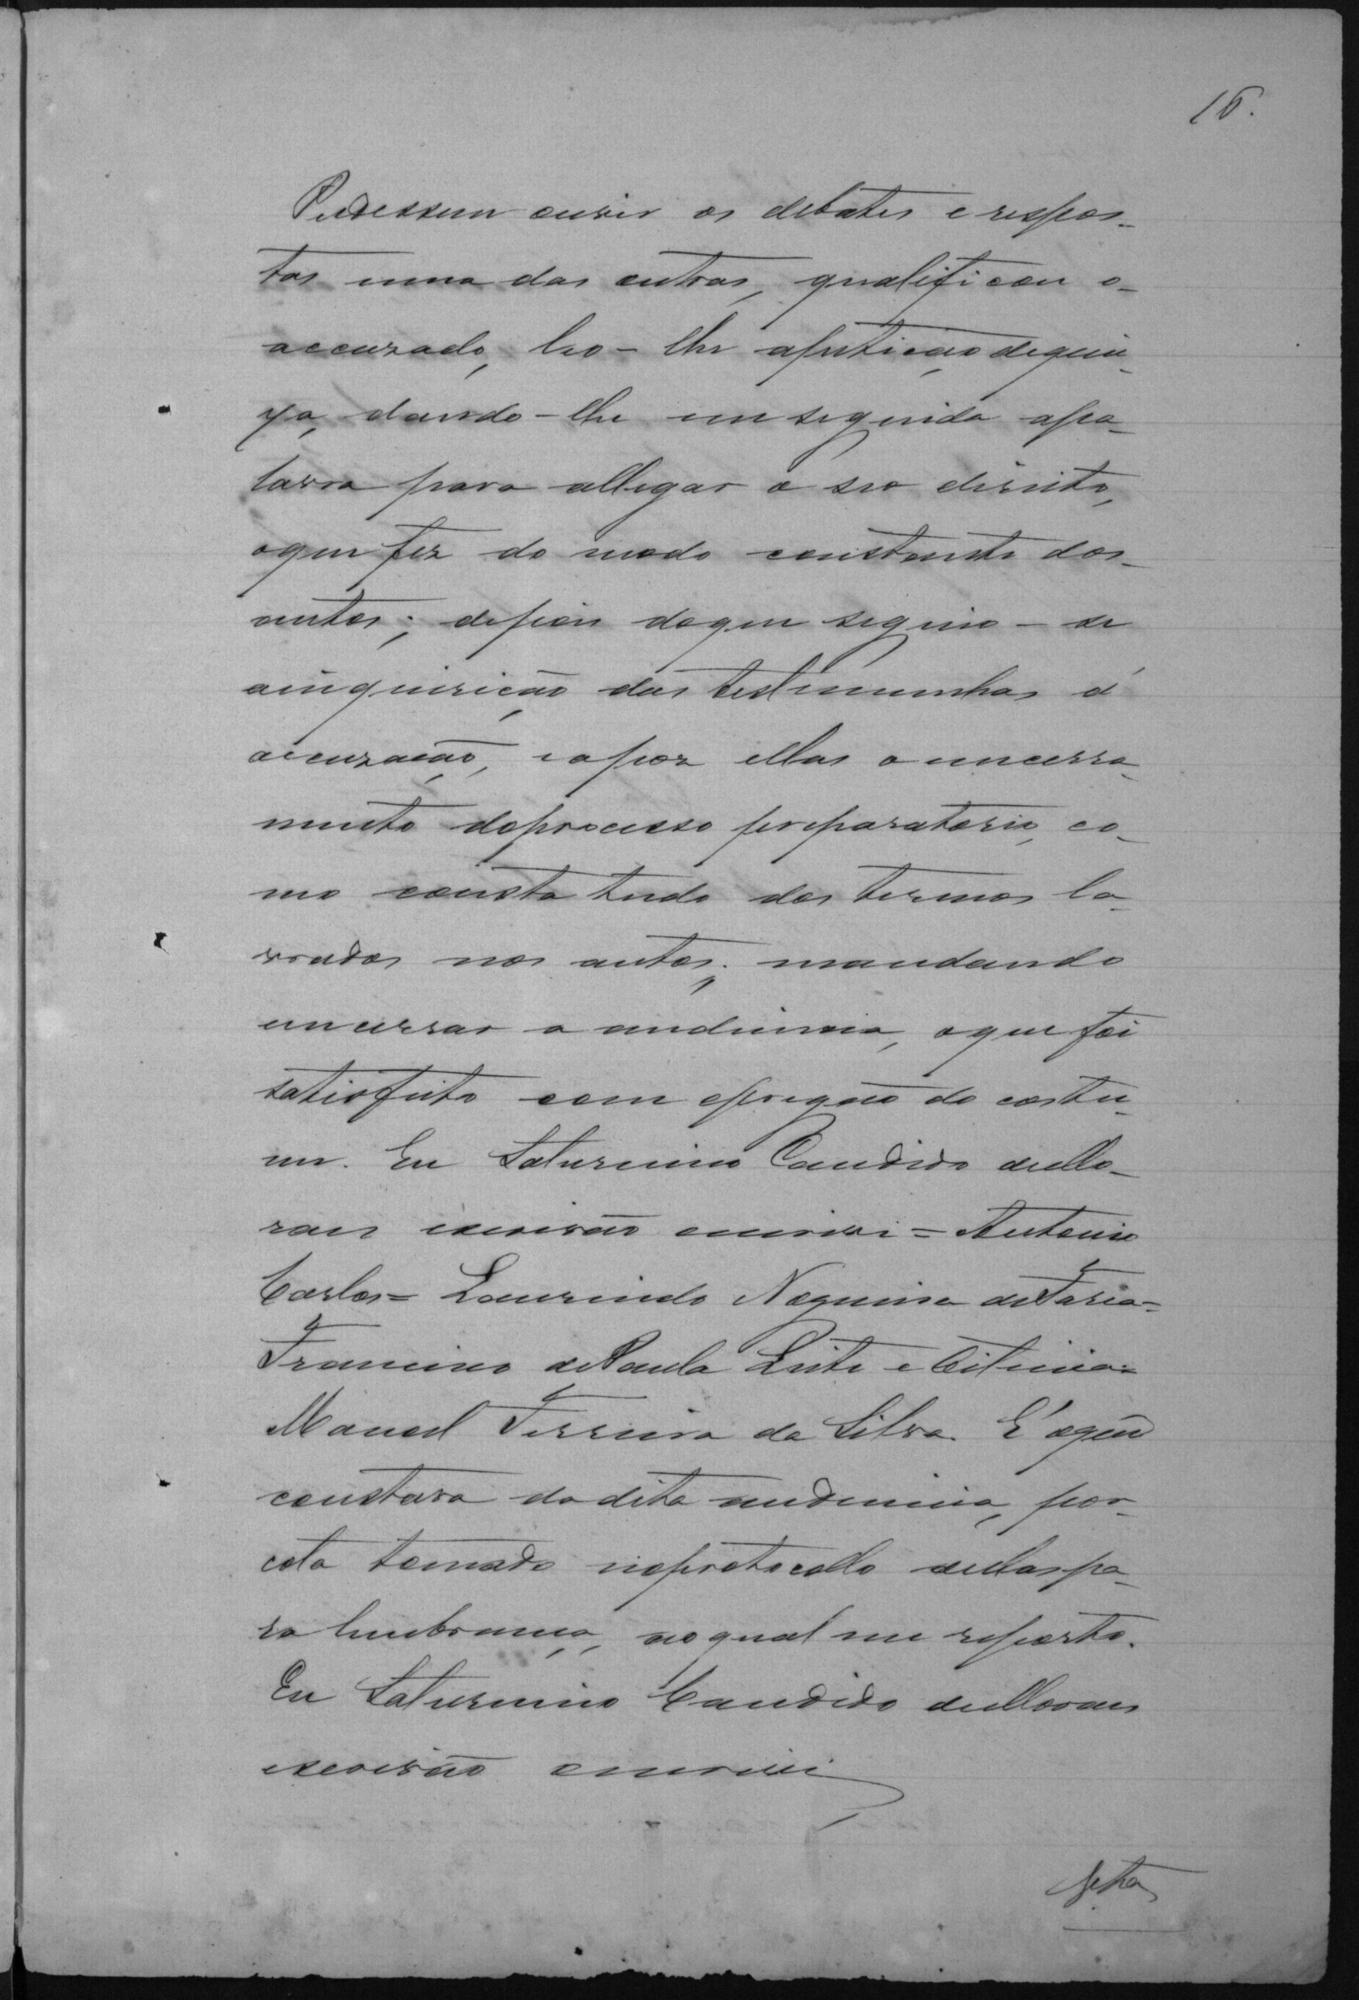 16.
Pudessem ouvir os debates e respos-
tas umas das outras, qualificou o
accusado, leo-lhe a petição de quei-
xa, dando-lhe em seguida a pa-
lavra para allegar o seo direito,
o que fez do modo constante dos
autos; depois do que seguio-se
a inquirição das testimunhas d'
accusação, e apoz ellas o encerra-
mento do processo preparatorio, co-
mo consta tudo dos termos la-
vrados nos autos; mandando
encerrar a audiencia, o que foi
satisfeito com o pregão do costu-
me. Eu Saturnino Candido de Mo-
raes escrivão escrevi = Antonio
Carlos = Laurindo Nogueira de Faria =
Francisco de Paula Leite e Oiticica =
Manoel Ferreira da Silva. É o que
constava da dita audiencia, por
cota tomada no protocollo dellas pa-
ra lembrança, ao qual me reporto.
Eu Saturnino Candido de Moraes
escrivão escrevi